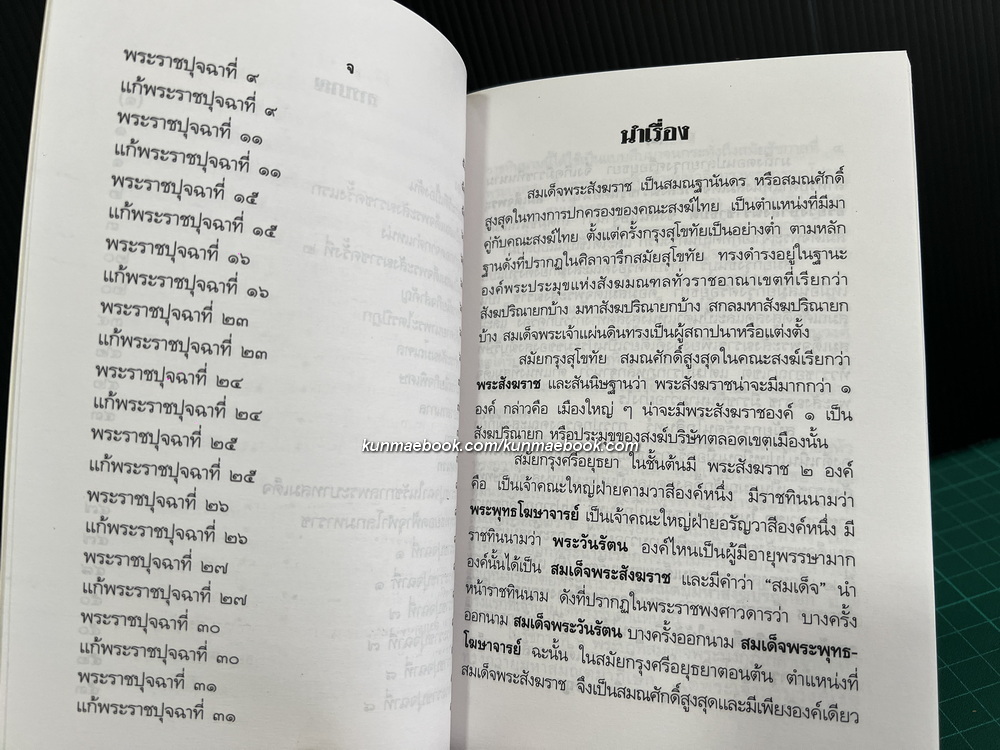 จ
พระราชปุจฉาที่ ๙
แก้พระราชปุจฉาที่ ๙
พระราชปุจฉาที่ ๑๑
แก้พระราชปุจฉาที่ ๑๑
พระราชปุจฉาที่ ๑๕
แก้พระราชปุจฉาที่ ๑๕
พระราชปุจฉาที่ ๑๖
แก้พระราชปุจฉาที่ ๑๖
พระราชปุจฉาที่ ๒๓
แก้พระราชปุจฉาที่ ๒๓
พระราชปุจฉาที่ ๒๔
แก้พระราชปุจฉาที่ ๒๔
พระราชปุจฉาที่ ๒๕
แก้พระราชปุจฉาที่ ๒๕
พระราชปุจฉาที่ ๒๖
แก้พระราชปุจฉาที่ ๒๖
พระราชปุจฉาที่ ๒๗
แก้พระราชปุจฉาที่ ๒๗
พระราชปุจฉาที่ ๓๐
แก้พระราชปุจฉาที่ ๓๐
พระราชปุจฉาที่ ๓๑
แก้พระราชปุจฉาที่ ๓๑
นำเรื่อง
สมเด็จพระสังฆราช เป็นสมณฐานันดร หรือสมณศักดิ์
สูงสุดในทางการปกครองของคณะสงฆ์ไทย เป็นตำแหน่งที่มีมา
คู่กับคณะสงฆ์ไทย ตั้งแต่ครั้งกรุงสุโขทัยเป็นอย่างต่ำ ตามหลัก
ฐานดั่งที่ปรากฏในศิลาจารึกสมัยสุโขทัย ทรงดำรงอยู่ในฐานะ
องค์พระประมุขแห่งสังฆมณฑลทั่วราชอาณาเขตที่เรียกว่า
สังฆปริณายกบ้าง มหาสังฆปริณายกบ้าง สกลมหาสังฆปริณายก
บ้าง สมเด็จพระเจ้าแผ่นดินทรงเป็นผู้สถาปนาหรือแต่งตั้ง
สมัยกรุงสุโขทัย สมณศักดิ์สูงสุดในคณะสงฆ์เรียกว่า
พระสังฆราช และสันนิษฐานว่า พระสังฆราชน่าจะมีมากกว่า ๑
องค์ กล่าวคือ เมืองใหญ่ ๆ น่าจะมีพระสังฆราชองค์ ๑ เป็น
สังฆปริณายก หรือประมุขของสงฆ์บริษัทตลอดเขตเมืองนั้น
kunmaebook.com/kunmaebook.com
สมัยกรุงศรีอยุธยา ในชั้นต้นมี พระสังฆราช ๒ องค์
คือ เป็นเจ้าคณะใหญ่ฝ่ายคามวาสีองค์หนึ่ง มีราชทินนามว่า
พระพุทธโฆษาจารย์ เป็นเจ้าคณะใหญ่ฝ่ายอรัญวาสีองค์หนึ่ง มี
ราชทินนามว่า พระวันรัตน องค์ไหนเป็นผู้มีอายุพรรษามาก
องค์นั้นได้เป็น สมเด็จพระสังฆราช และมีคำว่า “สมเด็จ” นำ
หน้าราชทินนาม ดังที่ปรากฏในพระราชพงศาวดารว่า บางครั้ง
ออกนาม สมเด็จพระวันรัตน บางครั้งออกนาม สมเด็จพระพุทธ-
โฆษาจารย์ ฉะนั้น ในสมัยกรุงศรีอยุธยาตอนต้น ตำแหน่งที่
สมเด็จพระสังฆราช จึงเป็นสมณศักดิ์สูงสุดและมีเพียงองค์เดียว